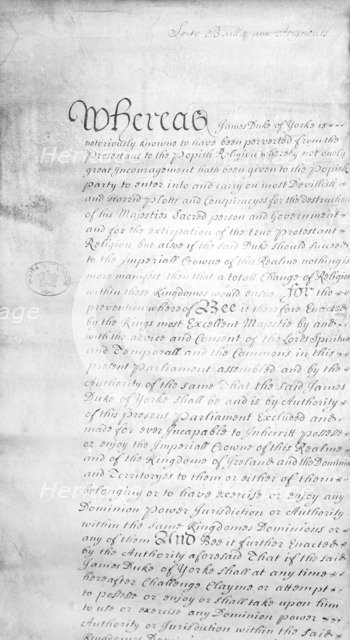 Soit Baillé aux Seigneurs
Whereas James Duke of Yorke is
notoriously knowne to have been perverted from the
Protestant to the Popish Religion whereby not onely
great Incouragement hath been given to the Popish
party to enter into and carry on most Devillish
and Horrid Plotts and Conspiracyes for the destruction
of his Majesties Sacred person and Government
and for the extirpation of the true Protestant
Religion, but alsoe if the said Duke should succeed
to the Imperiall Crowne of this Realme nothing is
more manifest then that a totall Change of Religion
within these Kingdomes would ensue for the
prevention whereof Bee it therefore Enacted
by the Kings most Excellent Majestie by and
with the advice and Consent of the Lords Spirituall
and Temporall and the Commons in this
present Parliament assembled and by the
Authority of the same That the said James
Duke of Yorke shall be and is by Authority
of this present Parliament Excluded and
made for ever Incapable to Inherritt possesse
or enjoy the Imperiall Crowne of this Realme
and of the Kingdome of Ireland and the Dominions
and Territoryes to them or either of them
belonging or to have exercise or enjoy any
Dominion power Jurisdiction or Authority
within the same Kingdomes Dominions or
any of them And Bee it further Enacted
by the Authority aforesaid That if the said
James Duke of Yorke shall at any time
hereafter Challenge Clayme or attempt
to possesse or enjoy or shall take upon him
to use or exercise any Dominion power
Authority or Jurisdiction within the said